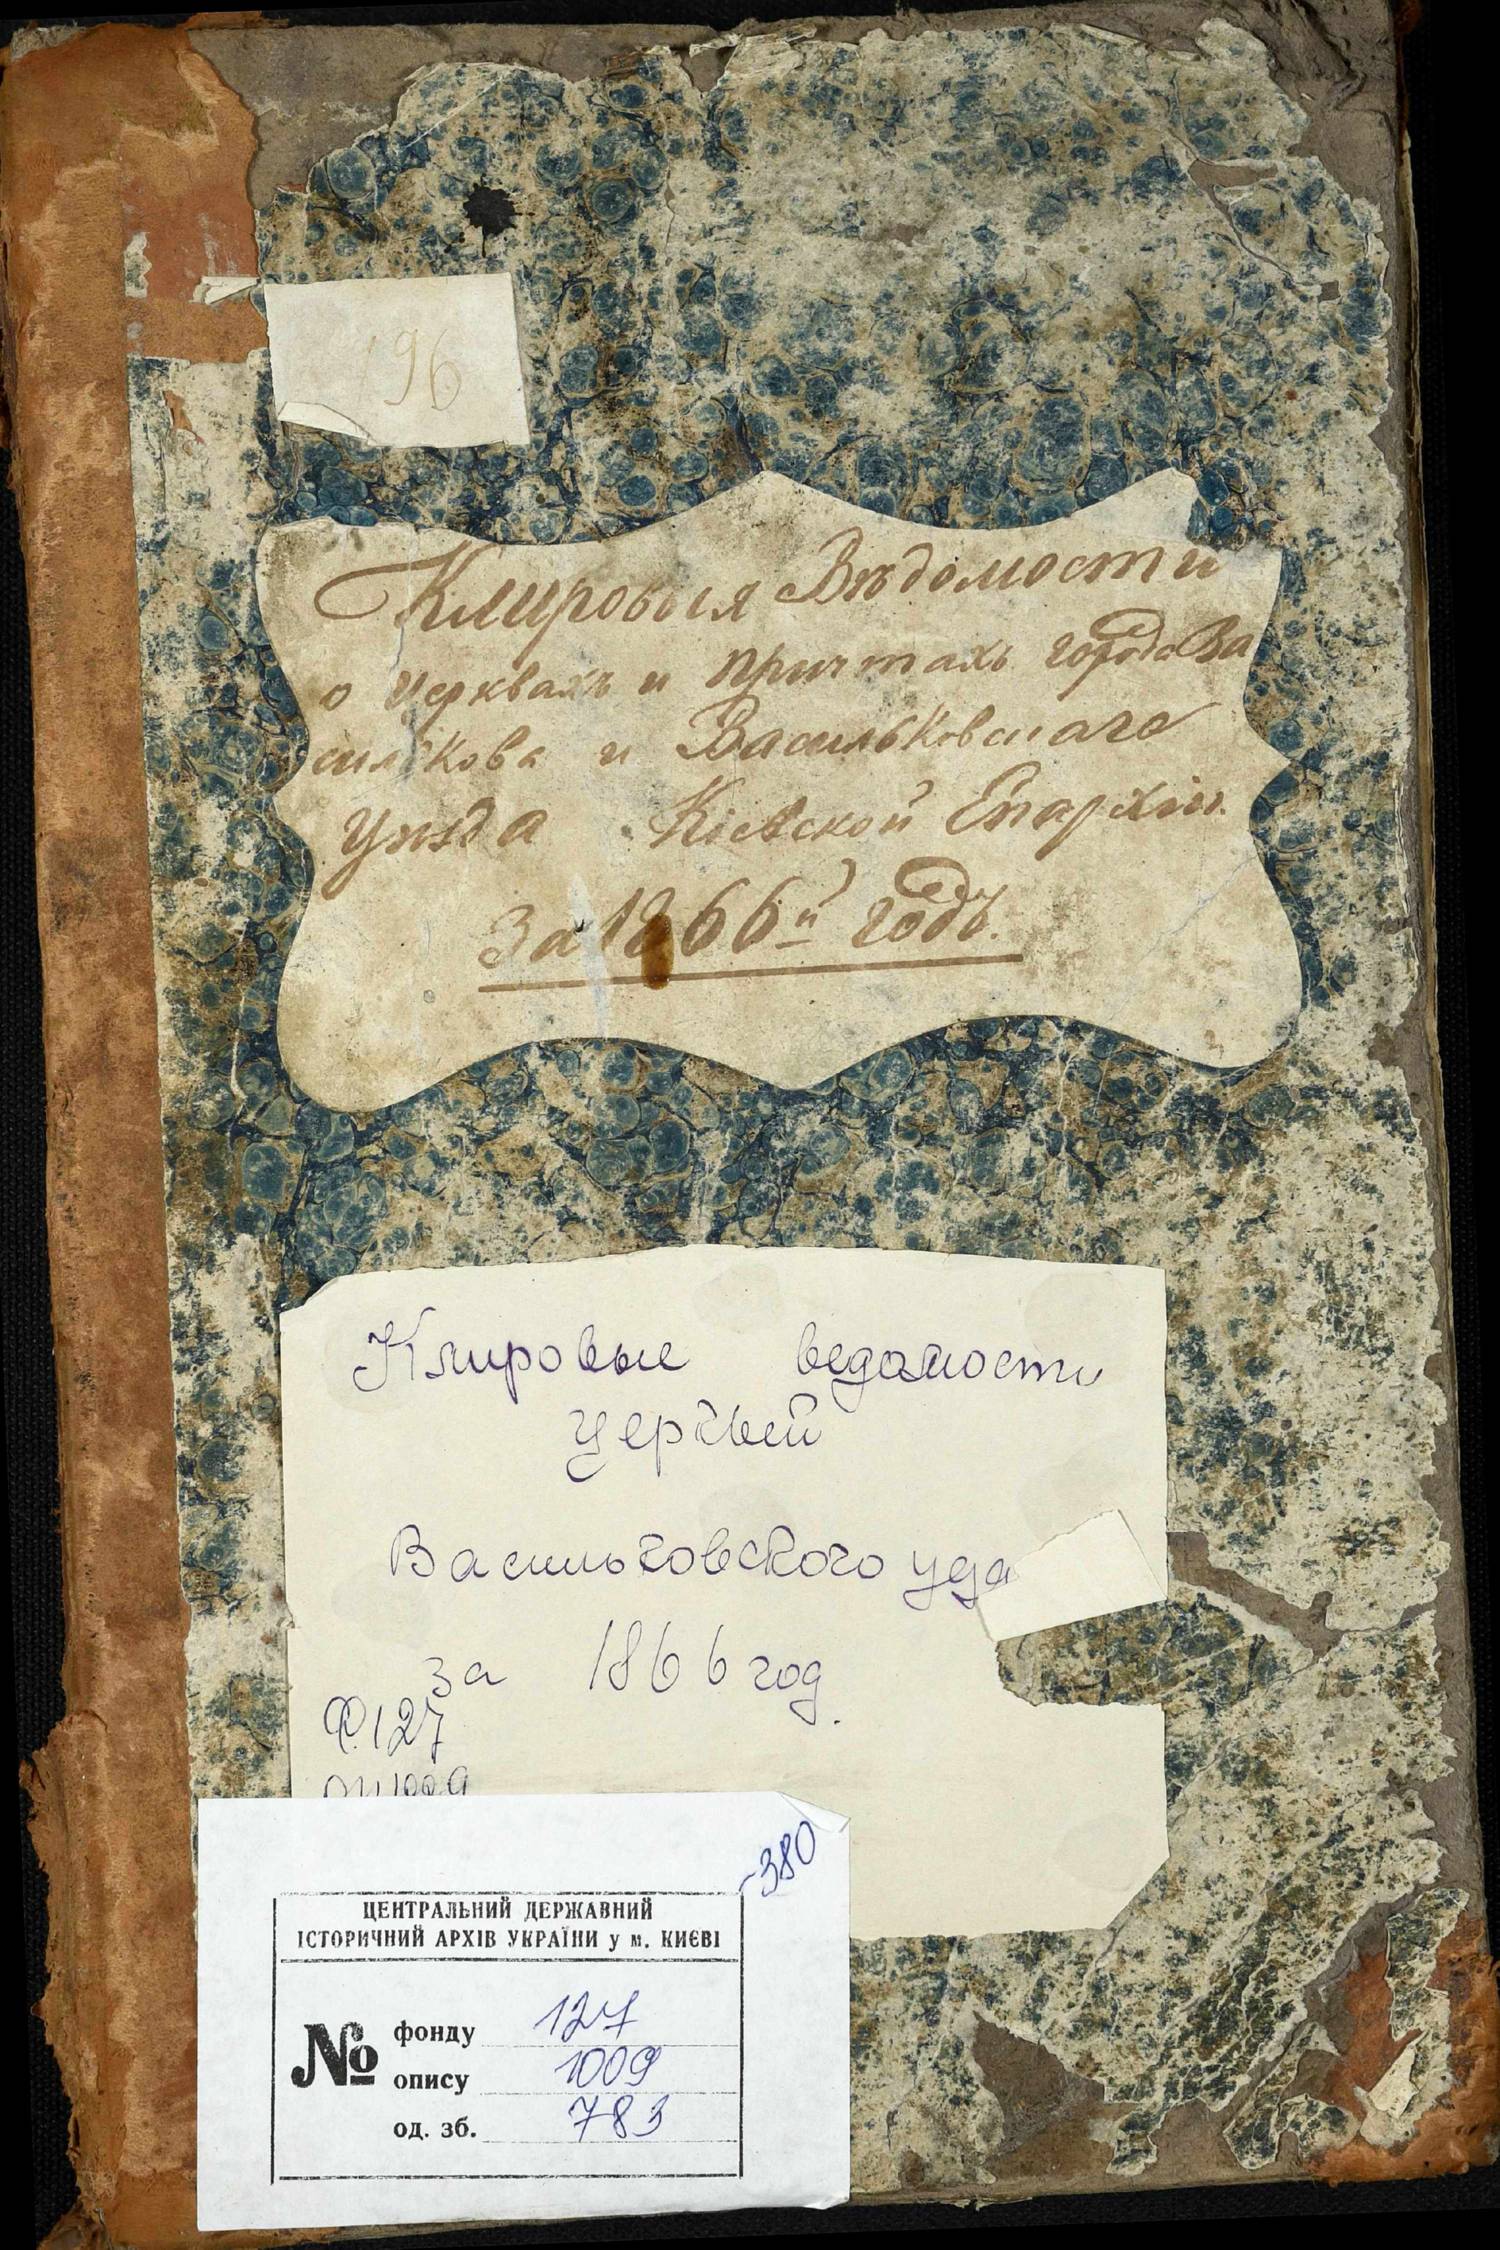 196
Клировыя Вѣдомости
о церквахъ и причтахъ города Ва
силькова и Васильковскаго
Уѣзда Кіевской Епархіи.
За 1866й годъ.
Клировые ведомости
церквей
Васильковского уезда
за 1866 год.
Ф. 127
оп 1009
-380
ЦЕНТРАЛЬНИЙ ДЕРЖАВНИЙ
ІСТОРИЧНИЙ АРХІВ УКРАЇНИ у м. КИЄВІ
№ фонду 127
опису 1009
од. зб. 783